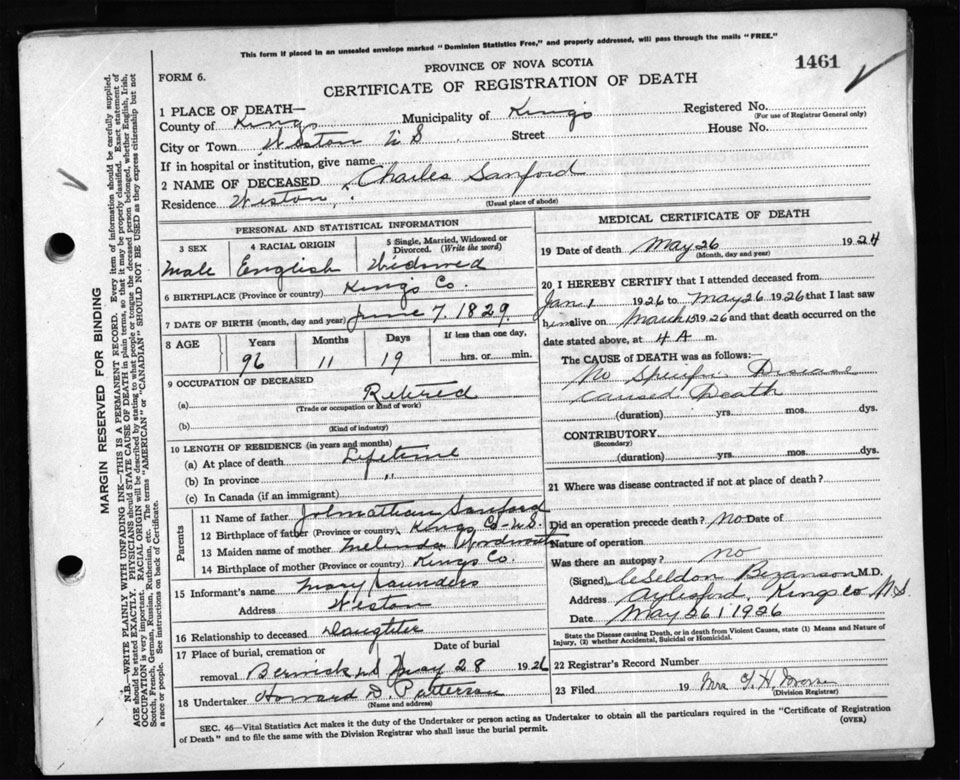 This form if placed in an unsealed envelope marked "Dominion Statistics Free," and properly addressed, will pass through the mails "FREE."
PROVINCE OF NOVA SCOTIA
1461
FORM 6.
CERTIFICATE OF REGISTRATION OF DEATH
1 PLACE OF DEATH—
County of Kings Municipality of Kings Registered No.
(For use of Registrar General only)
City or Town Weston N S Street House No.
If in hospital or institution, give name
2 NAME OF DECEASED Charles Sanford
Residence Weston
(Usual place of abode)
PERSONAL AND STATISTICAL INFORMATION
3 SEX
Male
4 RACIAL ORIGIN
English
5 Single, Married, Widowed or Divorced. (Write the word)
Widowed
6 BIRTHPLACE (Province or country) Kings Co.
7 DATE OF BIRTH (month, day and year) June 7. 1829.
8 AGE Years Months Days If less than one day,
96 11 19 hrs. or min.
9 OCCUPATION OF DECEASED
(a) Retired
(Trade or occupation or kind of work)
(b)
(Kind of industry)
10 LENGTH OF RESIDENCE (in years and months)
(a) At place of death Lifetime
(b) In province "
(c) In Canada (if an immigrant)
Parents
11 Name of father Sanford
12 Birthplace of father (Province or country) Kings Co - N.S.
13 Maiden name of mother Melinda
14 Birthplace of mother (Province or country) Kings Co.
15 Informant's name Mary Saunders
Address Weston
16 Relationship to deceased Daughter
17 Place of burial, cremation or removal Date of burial
Berwick May 28 1926
18 Undertaker Howard D. Patterson
(Name and address)
MEDICAL CERTIFICATE OF DEATH
19 Date of death May 26 1924
(Month, day and year)
20 I HEREBY CERTIFY that I attended deceased from
Jan 1 1926 to May 26 1926 that I last saw
him alive on March 15 1926 and that death occurred on the
date stated above, at 4 A m.
The CAUSE of DEATH was as follows:—
No Specific Disease
Caused Death
(duration) yrs. mos. dys.
CONTRIBUTORY
(Secondary)
(duration) yrs. mos. dys.
21 Where was disease contracted if not at place of death?
Did an operation precede death? No Date of
Nature of operation
Was there an autopsy? no
(Signed) Seldon Bezanson M.D.
Address Aylesford, Kings Co N.S.
Date May 26 1926
State the Disease causing Death, or in death from Violent Causes, state (1) Means and Nature of
Injury, (2) whether Accidental, Suicidal or Homicidal.
22 Registrar's Record Number
23 Filed 19 Mrs
(Division Registrar)
SEC. 46—Vital Statistics Act makes it the duty of the Undertaker or person acting as Undertaker to obtain all the particulars required in the "Certificate of Registration
of Death" and to file the same with the Division Registrar who shall issue the burial permit.
(OVER)
MARGIN RESERVED FOR BINDING
N.B.—WRITE PLAINLY WITH UNFADING INK—THIS IS A PERMANENT RECORD. Every item of information should be carefully supplied.
AGE should be stated EXACTLY. PHYSICIANS should STATE CAUSE OF DEATH in plain terms, so that it may be properly classified. Exact statement of
OCCUPATION is very important. RACIAL ORIGIN will be described by stating to what people or tongue the deceased person belonged, whether English, Irish,
Scotch, French, German, Russian, Ruthenian, etc. The terms "AMERICAN" or "CANADIAN" SHOULD NOT BE USED as they express citizenship but not
a race or people. See instructions on back of Certificate.